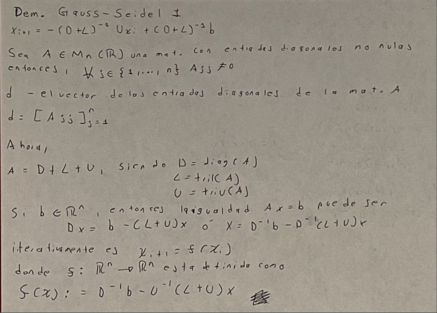 Dem. Gauss-Seidel 1
x_{i+1} = -(D+L)^{-1} U x_i + (D+L)^{-1} b
Sea A ∈ M_n(ℝ) una mat. con entradas diagonales no nulas
entonces, ∀ j ∈ {1,...,n} A_{jj} ≠ 0
d - el vector de las entradas diagonales de la mat. A
d = [A_{jj}]_{j=1}^n
Ahora,
A = D + L + U, siendo D = diag(A)
L = tril(A)
U = triu(A)
Si b ∈ ℝ^n, entonces la igualdad Ax = b puede ser
Dx = b - (L+U)x o x = D^{-1}b - D^{-1}(L+U)x
iterativamente es x_{i+1} = f(x_i)
donde f: ℝ^n → ℝ^n esta definida como
f(x) := D^{-1}b - D^{-1}(L+U)x